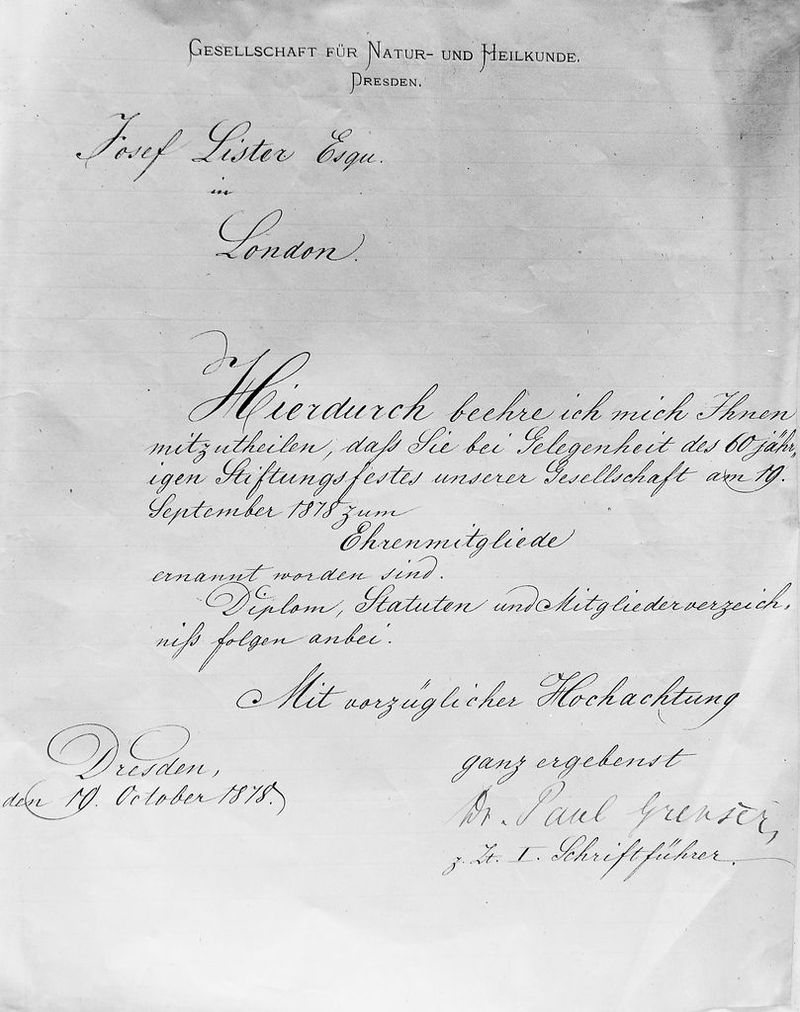 Gesellschaft für Natur- und Heilkunde.
Dresden.
Josef Lister Esqu.
in
London.
Hierdurch beehre ich mich Ihnen
mitzutheilen, daß Sie bei Gelegenheit des 60 jähr-
igen Stiftungsfestes unserer Gesellschaft am 19.
September 1878 zum
Ehrenmitgliede
ernannt worden sind.
Diplom, Statuten und Mitgliederverzeich-
niß folgen anbei.
Mit vorzüglicher Hochachtung
ganz ergebenst
Dresden,
den 19. October 1878.
Dr. Paul Grenser,
z. Zt. I. Schriftführer.